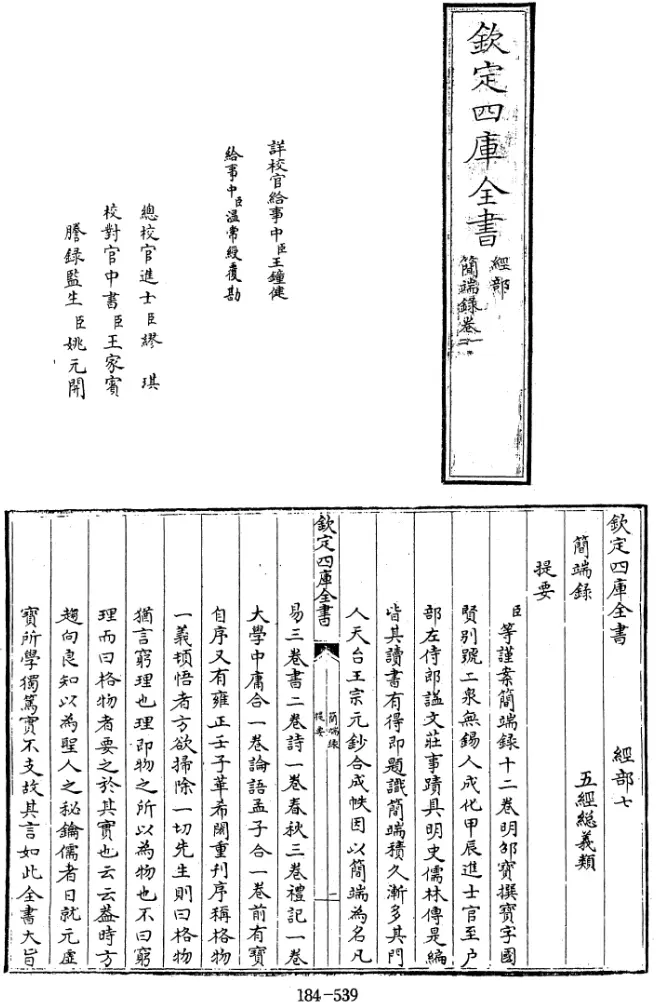 欽定四庫全書
經部
簡端錄卷一
詳校官給事中臣王鍾健
給事中臣溫常綬覆勘
總校官進士臣繆琪
校對官中書臣王家賓
謄錄監生臣姚元開
欽定四庫全書
經部七
簡端錄
五經總義類
提要
臣等謹案簡端錄十二卷明邵寶撰寶字國
賢別號二泉無錫人成化甲辰進士官至户
部左侍郎謚文莊事蹟具明史儒林傳是編
皆其讀書有得即題識簡端積久漸多其門
人天台王宗元鈔合成帙因以簡端為名凡
欽定四庫全書
簡端錄
提要
一
易三卷書二卷詩一卷春秋三卷禮記一卷
大學中庸合一卷論語孟子合一卷前有寶
自序又有雍正壬子華希閎重刊序稱格物
一義頓悟者方欲掃除一切先生則曰格物
猶言窮理也理即物之所以為物也不曰窮
理而曰格物者要之於其實也云云葢時方
趨向良知以為聖人之秘鑰儒者日就元虛
寶所學獨篤實不支故其言如此全書大旨
184-539